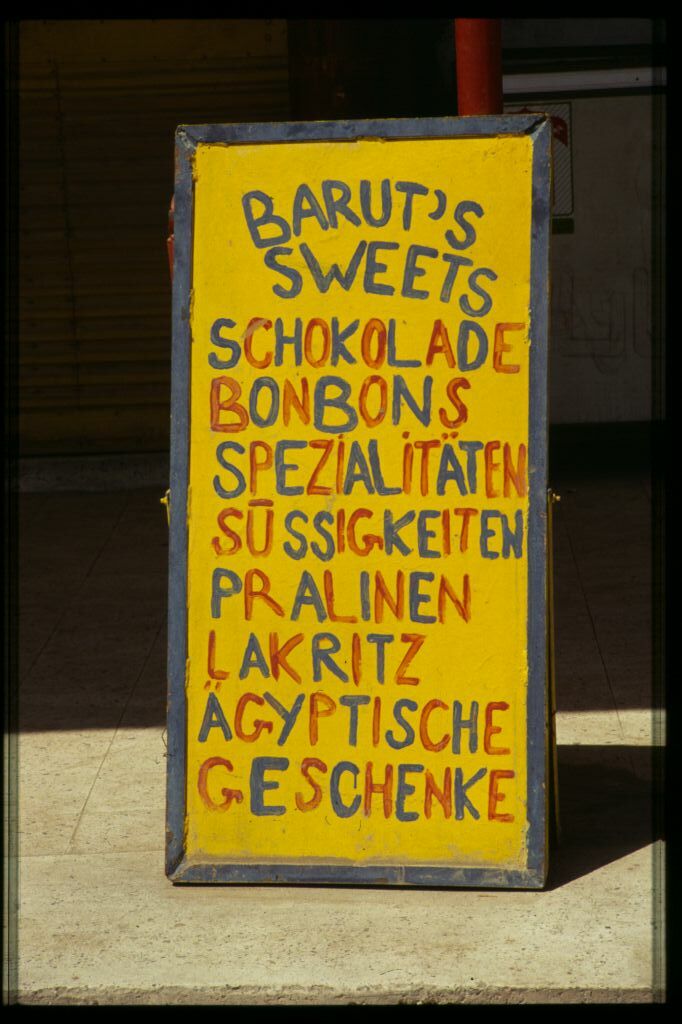 BARUT'S
SWEETS
SCHOKOLADE
BONBONS
SPEZIALITÄTEN
SÜSSIGKEITEN
PRALINEN
LAKRITZ
ÄGYPTISCHE
GESCHENKE